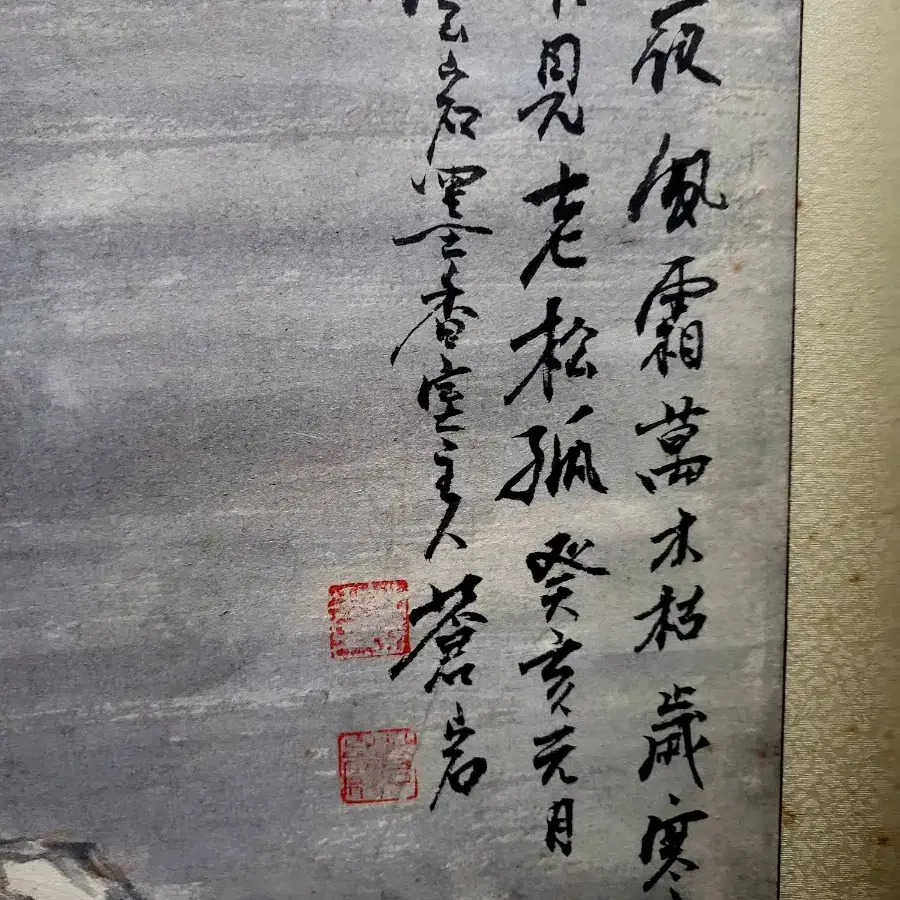 夜風霜萬木枯歲寒
見老松孤癸亥元月
岩墨香室主人蒼岩